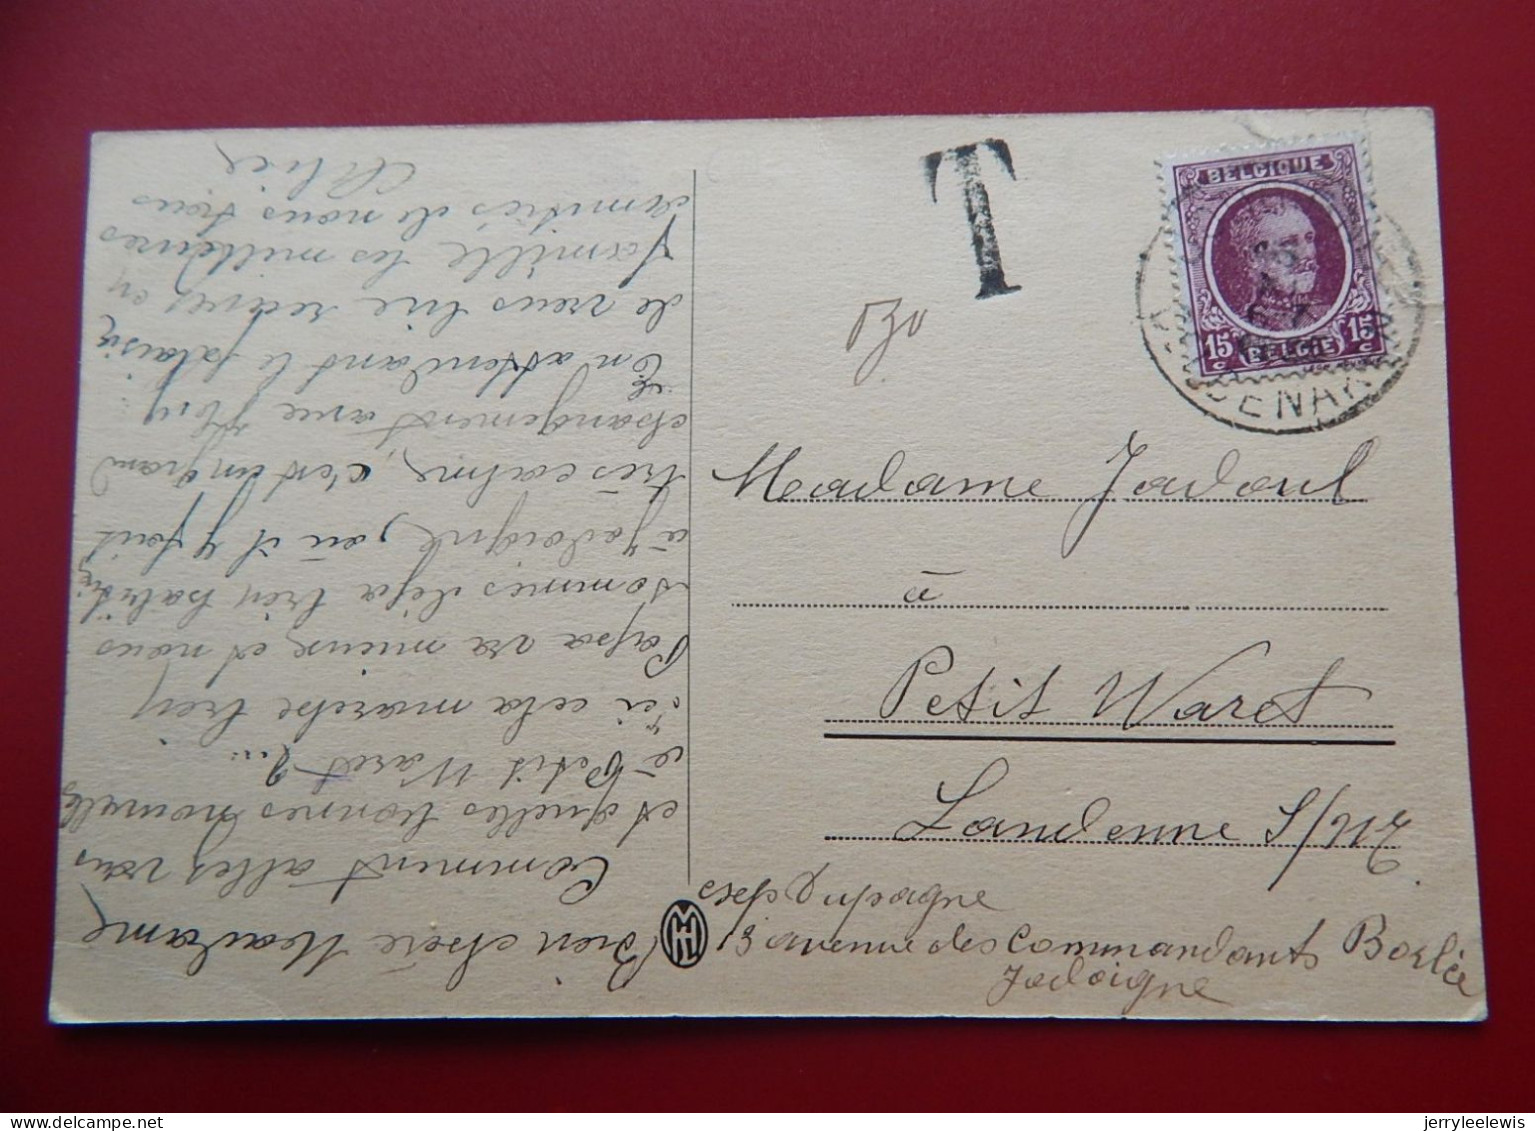 Bien chère Madame,
Comment allez vous
et quelles bonnes nouvelles
à Petit Waret ?
ici cela marche bien
Papa va mieux et nous
sommes déjà bien habitués
à Jodoigne, où il y fait
très calme, c'est un grand
changement avec Huy.
En attendant le plaisir
de vous lire recevez en
famille les meilleures
amitiés de nous tous
T
BELGIQUE
15 c 15 c
BELGIE
Madame Jadoul
à
Petit Waret
Landenne S/M
Dupagne
13 avenue des Commandants Borlée
Jodoigne
jerryleelewis